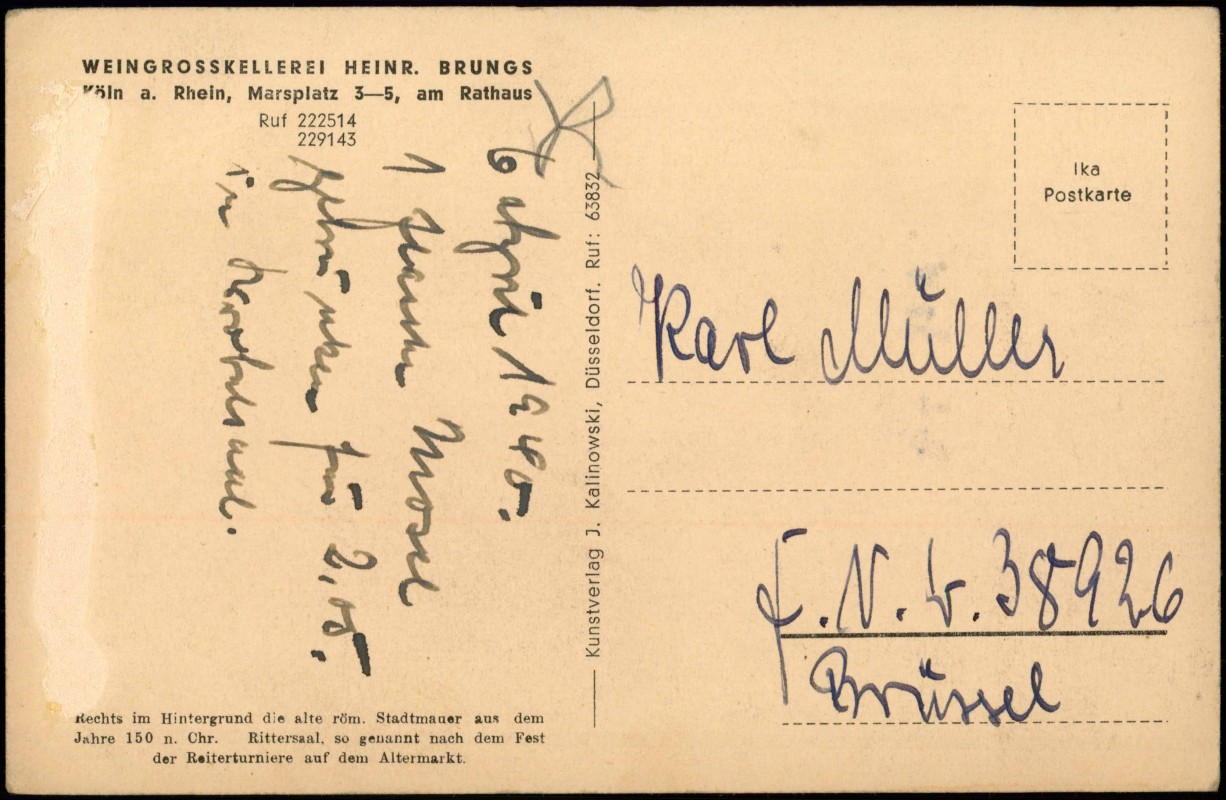 WEINGROSSKELLEREI HEINR. BRUNGS
Köln a. Rhein, Marsplatz 3—5, am Rathaus
Ruf 222514
229143
6 April 1940.
1 Mosel
getrunken für 2,00.
in
Rechts im Hintergrund die alte röm. Stadtmauer aus dem
Jahre 150 n. Chr. Rittersaal, so genannt nach dem Fest
der Reiterturniere auf dem Altermarkt.
Kunstverlag J. Kalinowski, Düsseldorf. Ruf: 63832
Ika
Postkarte
Karl Müller
F. N. 38926
Brüssel